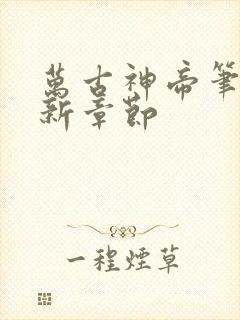 萬古神帝筆
新章節
一程煙草